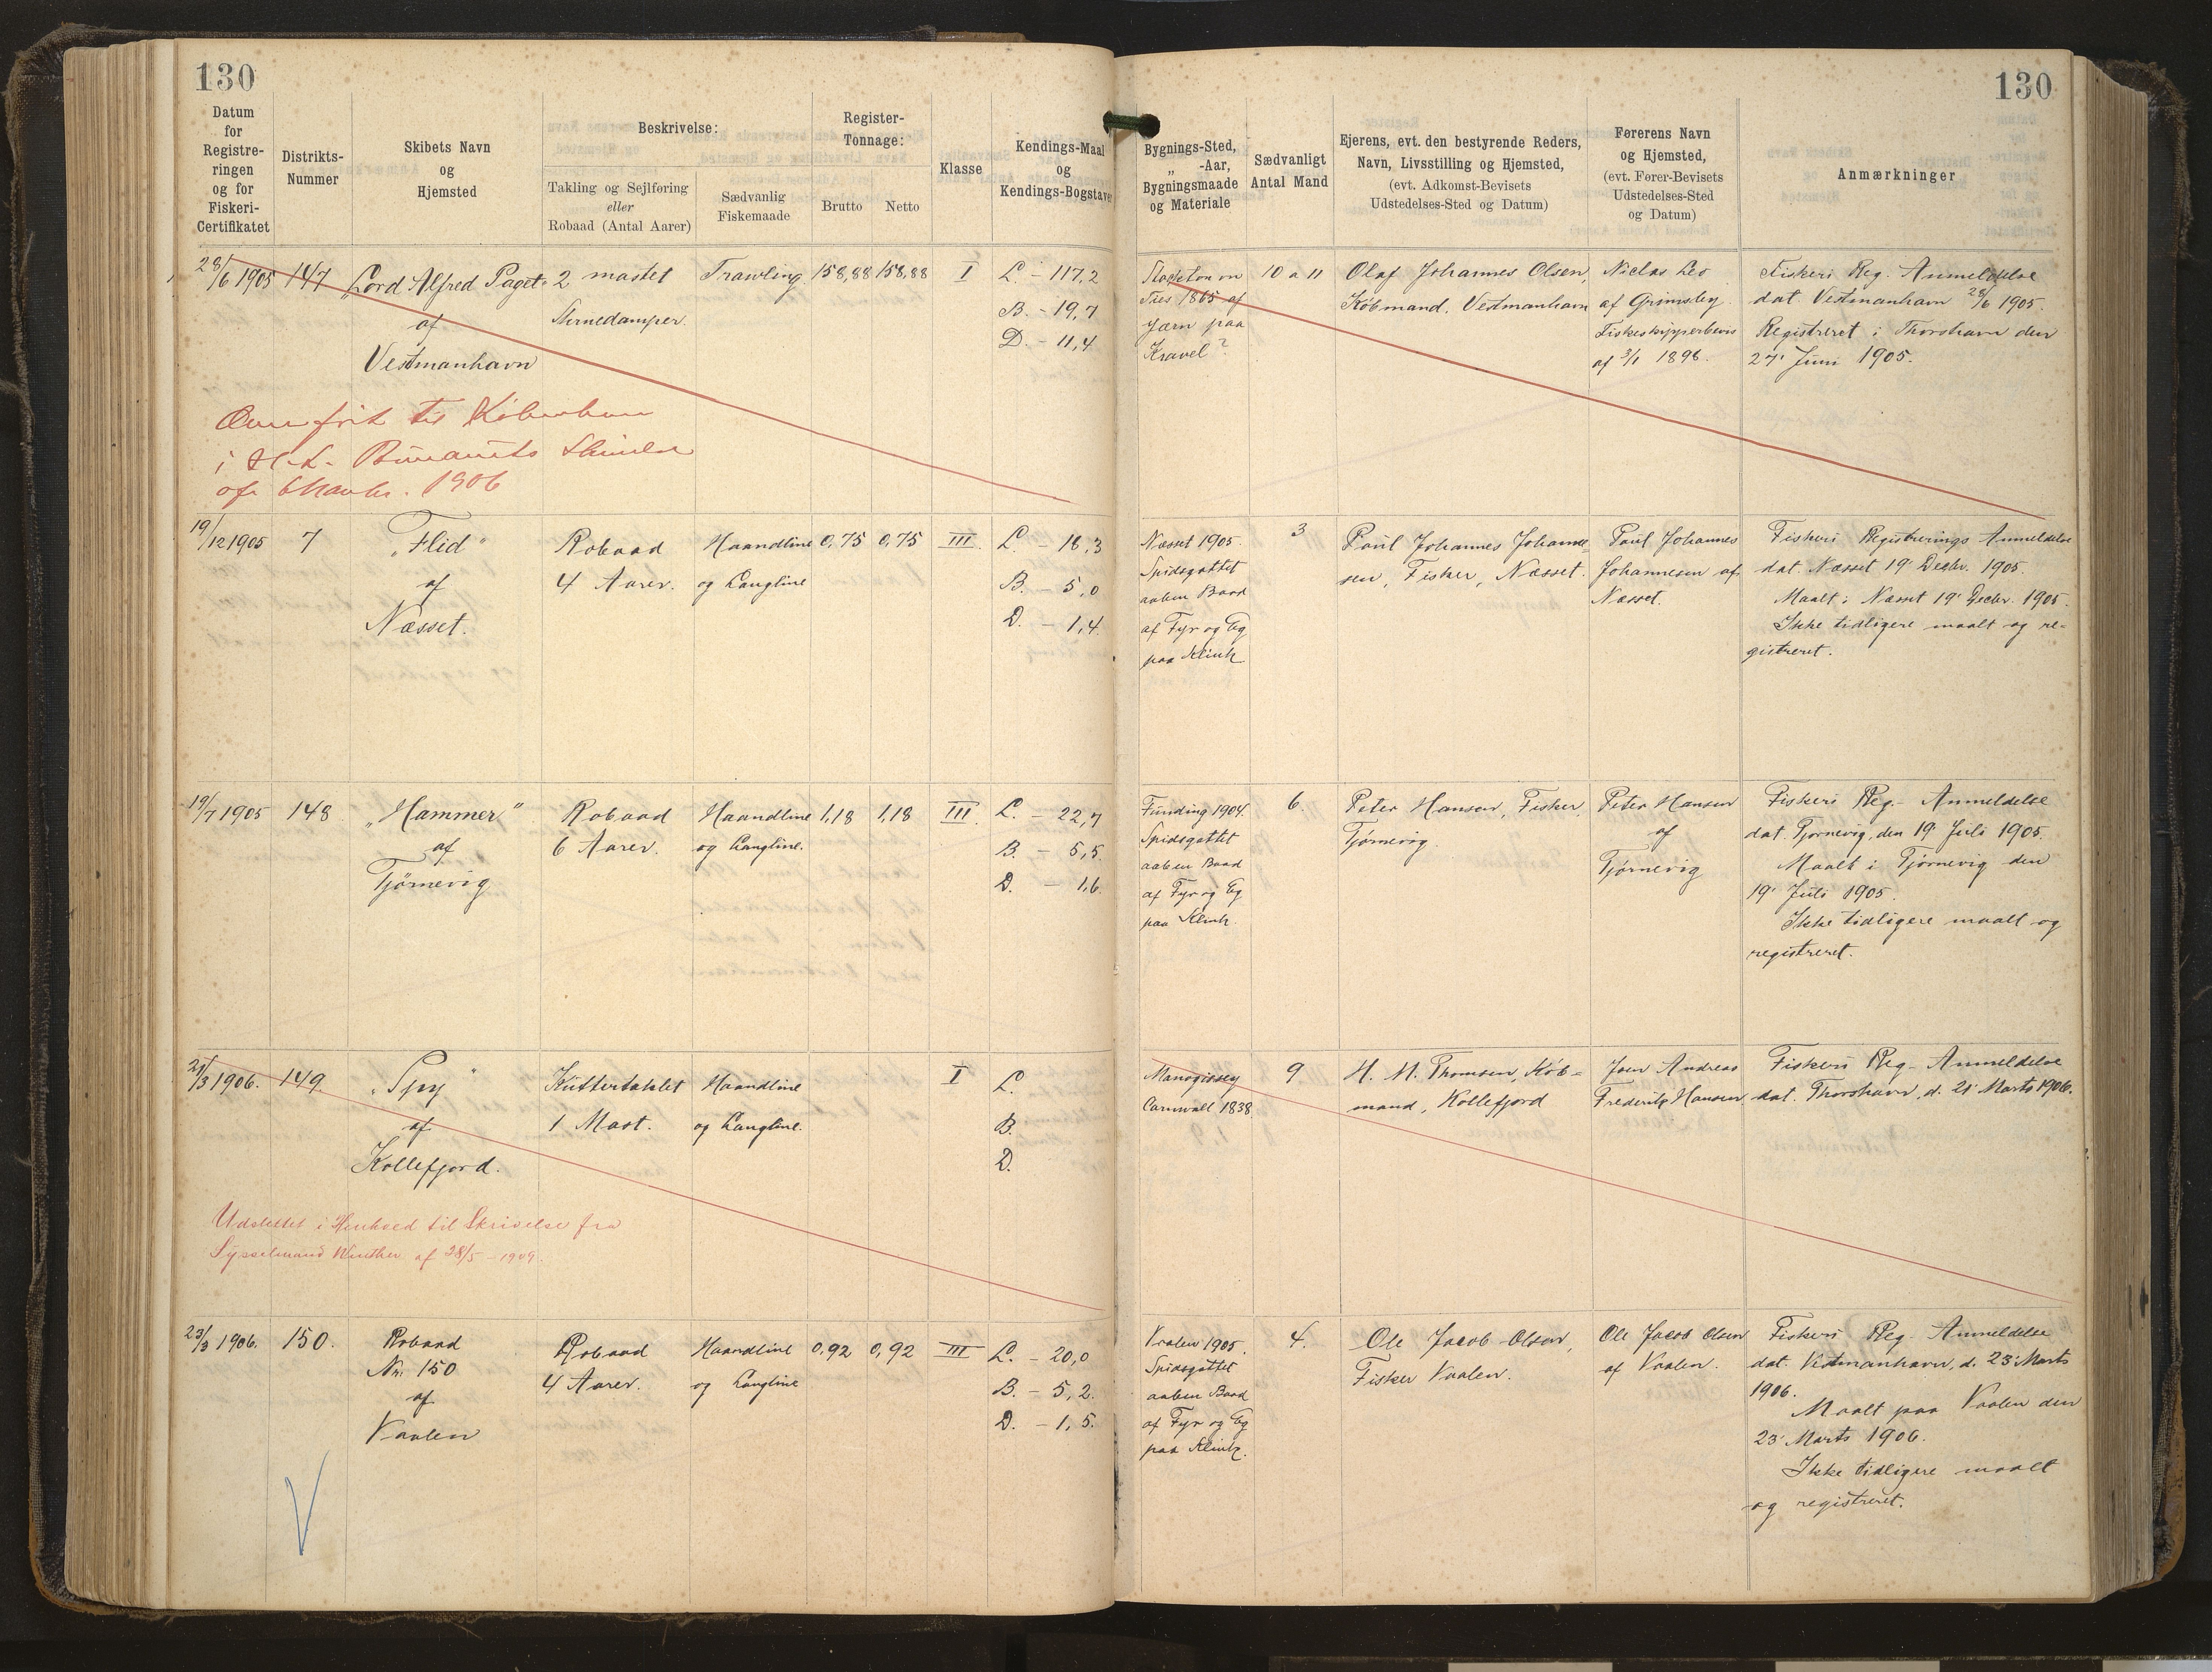 130
130
Datum
for
Registre-
ringen
og for
Fiskeri-
Certifikatet
Distrikts-
Nummer
Skibets Navn
og
Hjemsted
Beskrivelse:
Takling og Sejlføring
eller
Robaad (Antal Aarer)
Sædvanlig
Fiskemaade
Register-
Tonnage:
Brutto
Netto
Klasse
Kendings-Maal
og
Kendings-Bogstaver
Bygnings-Sted,
„ -Aar,
Bygningsmaade
og Materiale
Sædvanligt
Antal Mand
Ejerens, evt. den bestyrende Reders,
Navn, Livsstilling og Hjemsted,
(evt. Adkomst-Bevisets
Udstedelses-Sted og Datum)
Førerens Navn
og Hjemsted,
(evt. Fører-Bevisets
Udstedelses-Sted
og Datum)
Anmærkninger
28/6 1905
147
„Lord Alfred Paget"
af
Vestmanhavn
2 mastet
Trawling
158,88
158,88
I
L. - 117,2
B. - 19,7
D. - 11,4
Stockton on
Tees 1865 af
Jærn paa
Kravel?
10 a 11
Olaf Johannes Olsen,
Købmand, Vestmanhavn
Niclas Leo
af Grimsby.
Fiskeskipperbevis
af 3/1 1898.
Fiskeri Reg. Anmeldelse
dat. Vestmanhavn 28/6 1905.
Registreret i Thorshavn den
27' Juni 1905.
til København
1906
19/12 1905
7
„Flid"
af
Næsset.
Robaad
4 Aarer.
Haandline
og Langline
0,75
0,75
III.
L. - 18,3
B. - 5,0
D. - 1,4.
Næsset 1905.
Spidsgattet
aaben Baad
af Fyr og Eg
paa Klink
3
Poul Johannes Johanne-
sen, Fisker, Næsset.
Poul Johannes
Johannesen af
Næsset.
Fiskeri Registrerings Anmeldelse
dat. Næsset 19' Decbr. 1905.
Maalt i Næsset 19' Decbr. 1905.
Ikke tidligere maalt og re-
gistreret.
19/7 1905
148
„Hammer"
af
Tjørnevig
Robaad
6 Aarer.
Haandline
og Langline.
1,18
1,18
III.
L. - 22,7
B. - 5,5.
D. - 1,6.
Funding 1904.
Spidsgattet
aaben Baad
af Fyr og Eg
paa Klink.
6.
Peter Hansen, Fisker,
Tjørnevig.
Peter Hansen
af
Tjørnevig
Fiskeri Reg.- Anmeldelse
dat. Tjørnevig, den 19' Juli 1905.
Maalt i Tjørnevig den
19' Juli 1905.
Ikke tidligere maalt og
registreret.
21/3 1906.
149
„Spy"
af
Kollefjord.
Kuttertaklet
1 Mast.
Haandline
og Langline.
I
L.
B.
D.
Cornwall 1838
9
H. M. Thomsen, Køb-
mand, Kollefjord
Joen Andreas
Frederik Hansen
Fiskeri Reg- Anmeldelse
dat. Thorshavn, d. 21' Marts 1906.
Udslettet i Henhold til Skrivelse fra
Sysselmand Winther af 28/5 - 1909.
23/3 1906.
150.
Robaad
Nr. 150
af
Vaalen
Robaad
4 Aarer.
Haandline
og Langline
0,92
0,92
III
L. - 20,0
B. - 5,2.
D. - 1,5.
Vaalen 1905.
Spidsgattet
aaben Baad
af Fyr og Eg
paa Klink.
4.
Ole Jacob Olsen,
Fisker Vaalen.
Ole Jacob Olsen
af Vaalen.
Fiskeri Reg- Anmeldelse
dat. Vestmanhavn, d. 23' Marts
1906.
Maalt paa Vaalen den
23' Marts 1906.
Ikke tidligere maalt
og registreret.